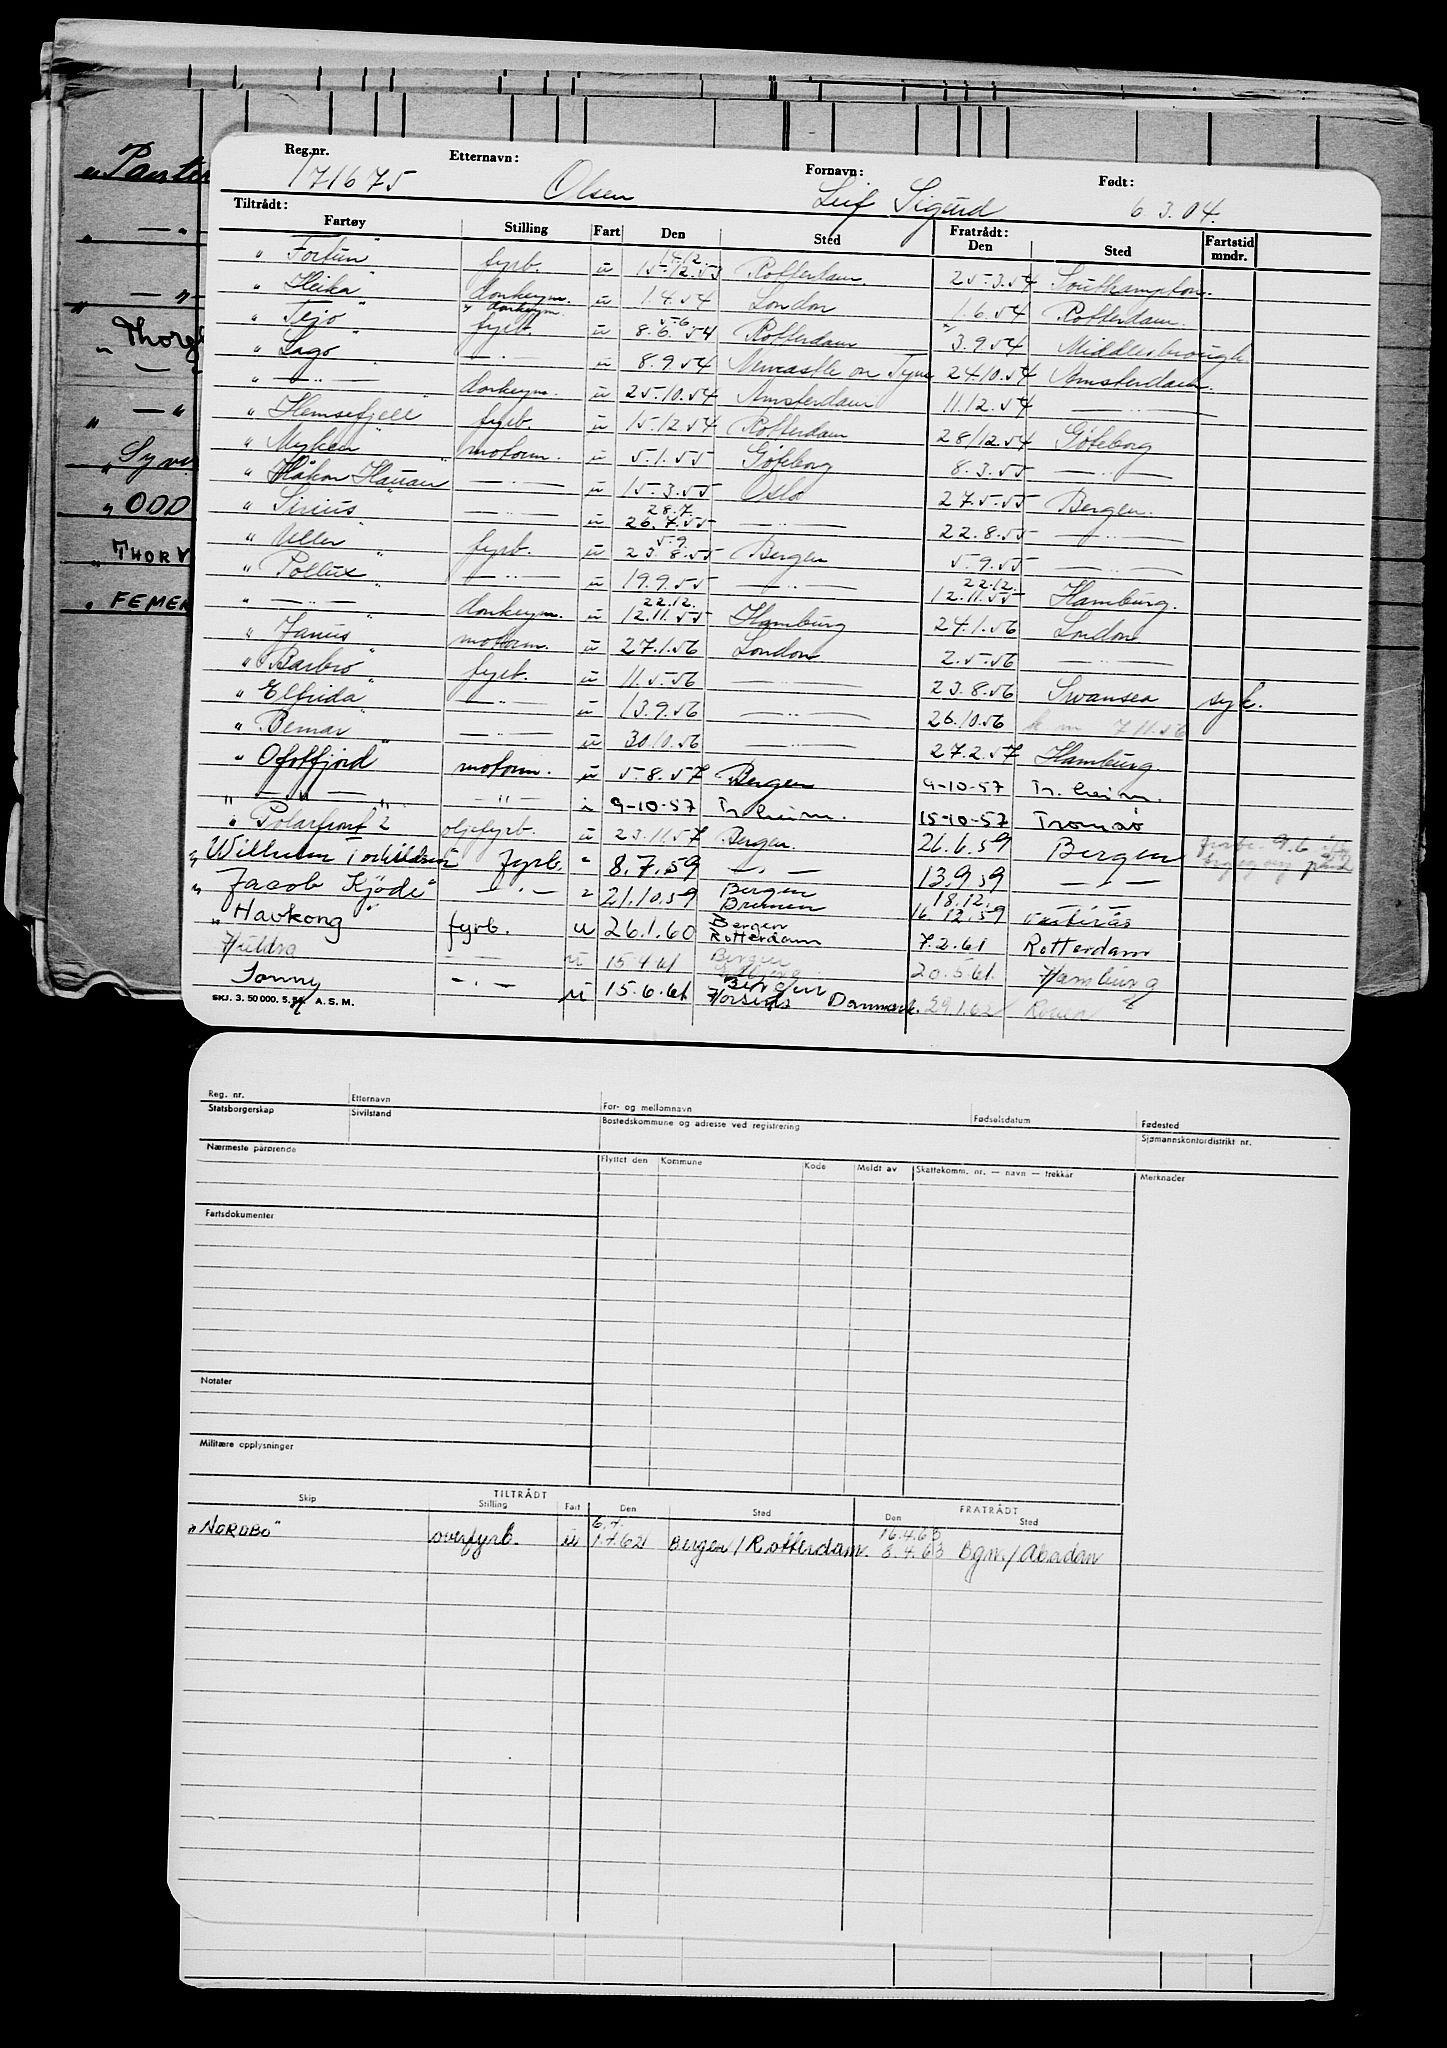 Reg.nr. 171675 Etternavn: Olsen Fornavn: Leif Sigurd Født: 6.3.04.
Tiltrådt: Fratrådt:
Fartøy Stilling Fart Den Sted Den Sted Fartstid mndr.
" Fortun " fyrb. u 15.12.53 Rotterdam 25.3.54 Southampton.
" Heika " donkeym. u 1.4.54 London 1.6.54 Rotterdam.
" Tejo " fyrb. donkeym. u 8.6.54 5.6 Rotterdam 3.9.54 Middlesbrough
" Lago " — " — u 8.9.54 Newcastle on Tyne 24.10.54 Amsterdam.
" — " — donkeym. u 25.10.54 Amsterdam 11.12.54 — " —
" Hemsefjell " fyrb. u 15.12.54 Rotterdam 28/12.54 Göteborg
" Myken " motorm. u 5.1.55 Göteborg 8.3.55 — " —
" Håkon Hauan " — " — u 15.3.55 Oslo 27.5.55 Bergen.
" Sirius " — " — u 28.7. 26.7.55 — " — 22.8.55 — " —
" Uller " fyrb. u 5.9. 23.8.55 Bergen 5.9.55 — " —
" Pollux " — " — u 19.9.55 — " — 22.12. 12.11.55 Hamburg.
" — " — donkeym. u 22.12. 12.11.55 Hamburg 24.1.56 London
" Janus " motorm. u 27.1.56 London 2.5.56 — " —
" Barbro " fyrb. u 11.5.56 — " — 23.8.56 Swansea syk.
" Elfrida " — " — u 13.9.56 — " — 26.10.56 7.11.56
" Bemar " — " — u 30.10.56 — " — 27.2.57 Hamburg.
" Ofotfjord " motorm. u 5.8.57 Bergen 9-10-57 Tr.heim.
" — " — " — " — i 9-10-57 Tr.heim. 15-10-57 Tromsø
" Polarfront 2 oljefyrb. u 23.11.57 Bergen. 26.6.59 Bergen
" Wilhelm Torkildsen " fyrb. " 8.7.59 — " — 13.9.59 — " —
" Jacob Kjöde " — " — " 21.10.59 Bergen Bremen 18.12. 16.12.59
" Havkong " fyrb. u 26.1.60 Bergen Rotterdam 7.2.61 Rotterdam
Huldra — — u 15.4.61 Bergen 20.5.61. Hamburg
Sonny — " — u 15.6.61 Bergen Horsens Danmark. 29.1.62 Rouen
SKJ. 3. 50 000. 5.54 A.S.M.
" Panter
" — " —
" — " —
" Thorg
— " —
" — "
" Syve
" ODD
" THORV
" FEMER
Reg. nr. Etternavn For- og mellomnavn Fødselsdatum Fødested
Statsborgerskap Sivilstand Bostedskommune og adresse ved registrering Sjømannskontordistrikt nr.
Nærmeste pårørende Flyttet den Kommune Kode Meldt av Skattekomm. nr. — navn — trekkår Merknader
Fartsdokumenter
Notater
Militære opplysninger
TILTRÅDT FRATRÅDT
Skip Stilling Fart Den Sted Den Sted
"NORDBO" overfyrb. u 6.7. 1.7.62 Bergen/Rotterdam. 16.4.63 8.4.63 Bgn./Abadan